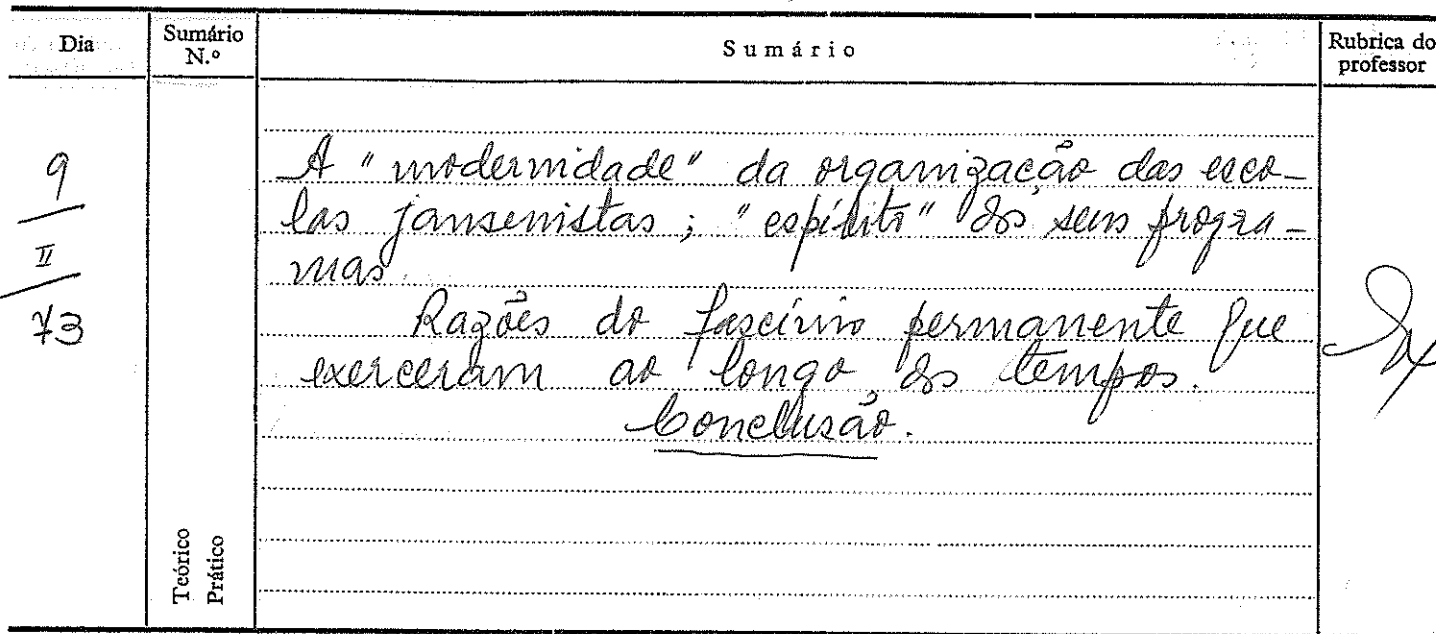 Dia
Sumário
N.º
Sumário
Rubrica do
professor
9
II
73
A "modernidade" da organização das esco-
las jansenistas; "espírito" dos seus progra-
mas.
Razões do fascínio permanente que
exerceram ao longo dos tempos.
Conclusão.
Teórico
Prático